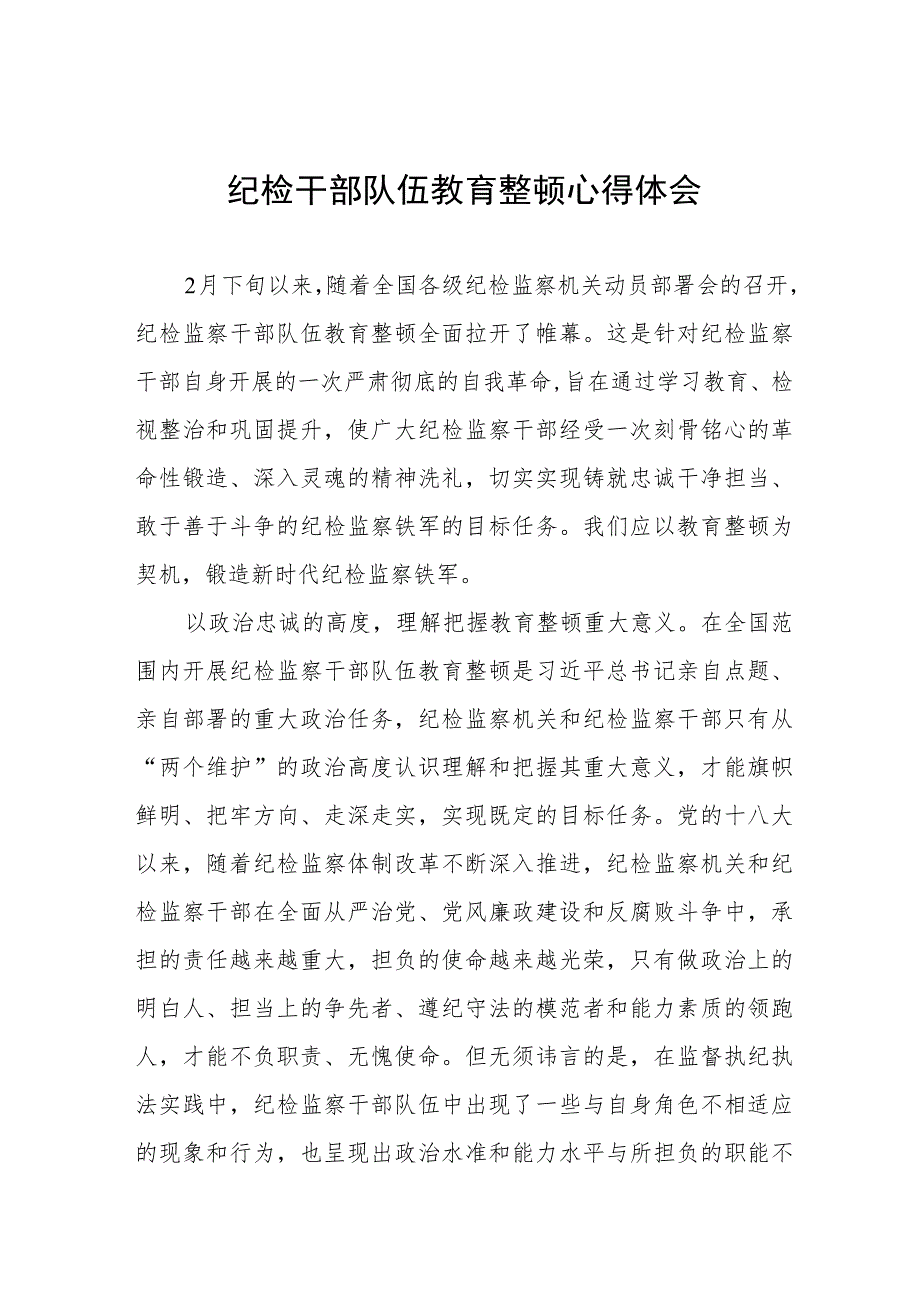 纪检干部队伍教育整顿心得体会
2月下旬以来,随着全国各级纪检监察机关动员部署会的召开,
纪检监察干部队伍教育整顿全面拉开了帷幕。这是针对纪检监察
干部自身开展的一次严肃彻底的自我革命,旨在通过学习教育、检
视整治和巩固提升，使广大纪检监察干部经受一次刻骨铭心的革
命性锻造、深入灵魂的精神洗礼，切实实现铸就忠诚干净担当、
敢于善于斗争的纪检监察铁军的目标任务。我们应以教育整顿为
契机，锻造新时代纪检监察铁军。
以政治忠诚的高度，理解把握教育整顿重大意义。在全国范
围内开展纪检监察干部队伍教育整顿是习近平总书记亲自点题、
亲自部署的重大政治任务，纪检监察机关和纪检监察干部只有从
“两个维护”的政治高度认识理解和把握其重大意义，才能旗帜
鲜明、把牢方向、走深走实，实现既定的目标任务。党的十八大
以来，随着纪检监察体制改革不断深入推进，纪检监察机关和纪
检监察干部在全面从严治党、党风廉政建设和反腐败斗争中，承
担的责任越来越重大，担负的使命越来越光荣，只有做政治上的
明白人、担当上的争先者、遵纪守法的模范者和能力素质的领跑
人，才能不负职责、无愧使命。但无须讳言的是，在监督执纪执
法实践中，纪检监察干部队伍中出现了一些与自身角色不相适应
的现象和行为，也呈现出政治水准和能力水平与所担负的职能不